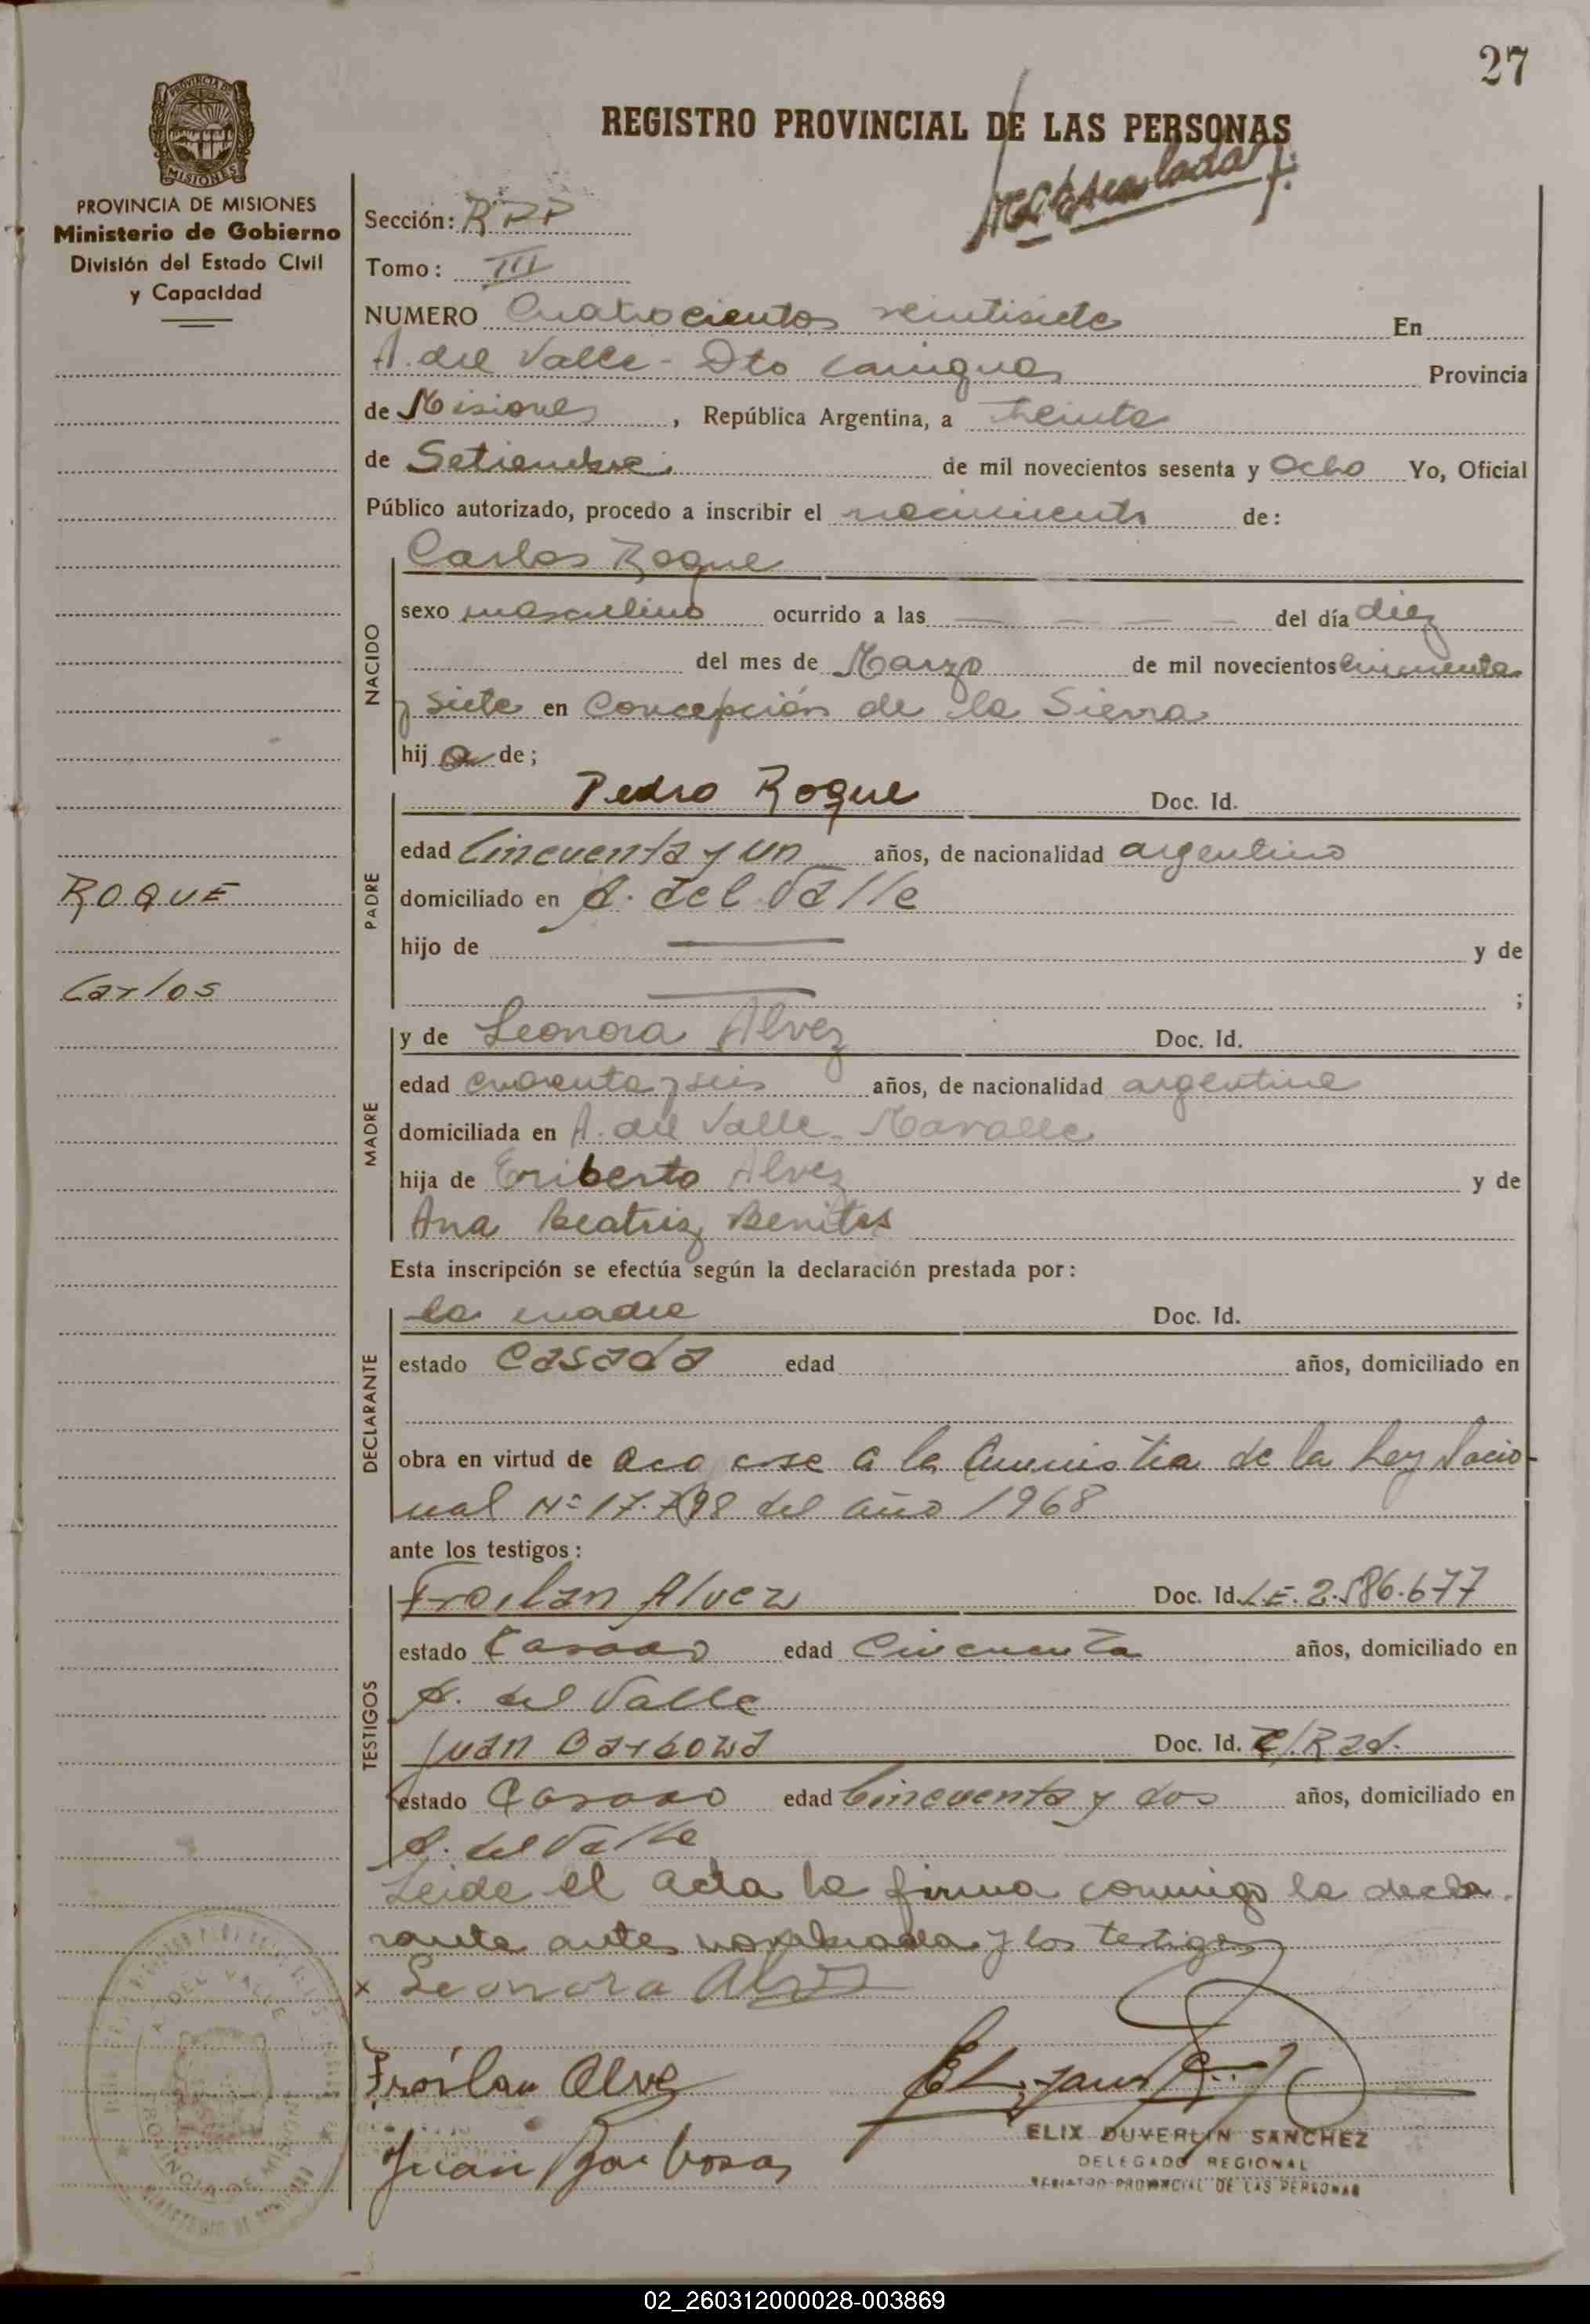 27
REGISTRO PROVINCIAL DE LAS PERSONAS
PROVINCIA DE MISIONES
Ministerio de Gobierno
División del Estado Civil
y Capacidad
Sección: RPP
Tomo: III
NUMERO Cuatrocientos veintisiete En
A. del Valle - Dto Cainguas Provincia
de Misiones, República Argentina, a treinta
de Setiembre. de mil novecientos sesenta y Ocho Yo, Oficial
Público autorizado, procedo a inscribir el nacimiento de:
NACIDO
Carlos Roque
sexo masculino ocurrido a las — — — — del día diez
del mes de Marzo de mil novecientos cincuenta
y siete en Concepción de la Sierra
hijo de;
PADRE
Pedro Roque Doc. Id.
edad Cincuenta y un años, de nacionalidad argentino
domiciliado en A. del Valle
ROQUE
hijo de — y de
Carlos
— ;
MADRE
y de Leonora Alvez Doc. Id.
edad cuarenta y seis años, de nacionalidad argentina
domiciliada en A. del Valle
hija de Eriberto Alvez y de
Ana Beatriz Benites
Esta inscripción se efectúa según la declaración prestada por:
DECLARANTE
la madre Doc. Id.
estado Casada edad años, domiciliado en
obra en virtud de acogerse a la Amnistia de la Ley Nacio-
nal Nº 17. del año 1968
ante los testigos:
TESTIGOS
Froilan Alvez Doc. Id. L.E. 2.586.677
estado Casado edad Cincuenta años, domiciliado en
A. del Valle
Juan Barboza Doc. Id.
estado Casado edad Cincuenta y dos años, domiciliado en
A. del Valle
Leida el acta la firma conmigo la decla-
rante antes nombrada y los testigos
x Leonora Alvez
Froilan Alvez
Juan Barbosa
ELIX DUVERLIN SANCHEZ
DELEGADO REGIONAL
REGISTRO PROVINCIAL DE LAS PERSONAS
02_260312000028-003869